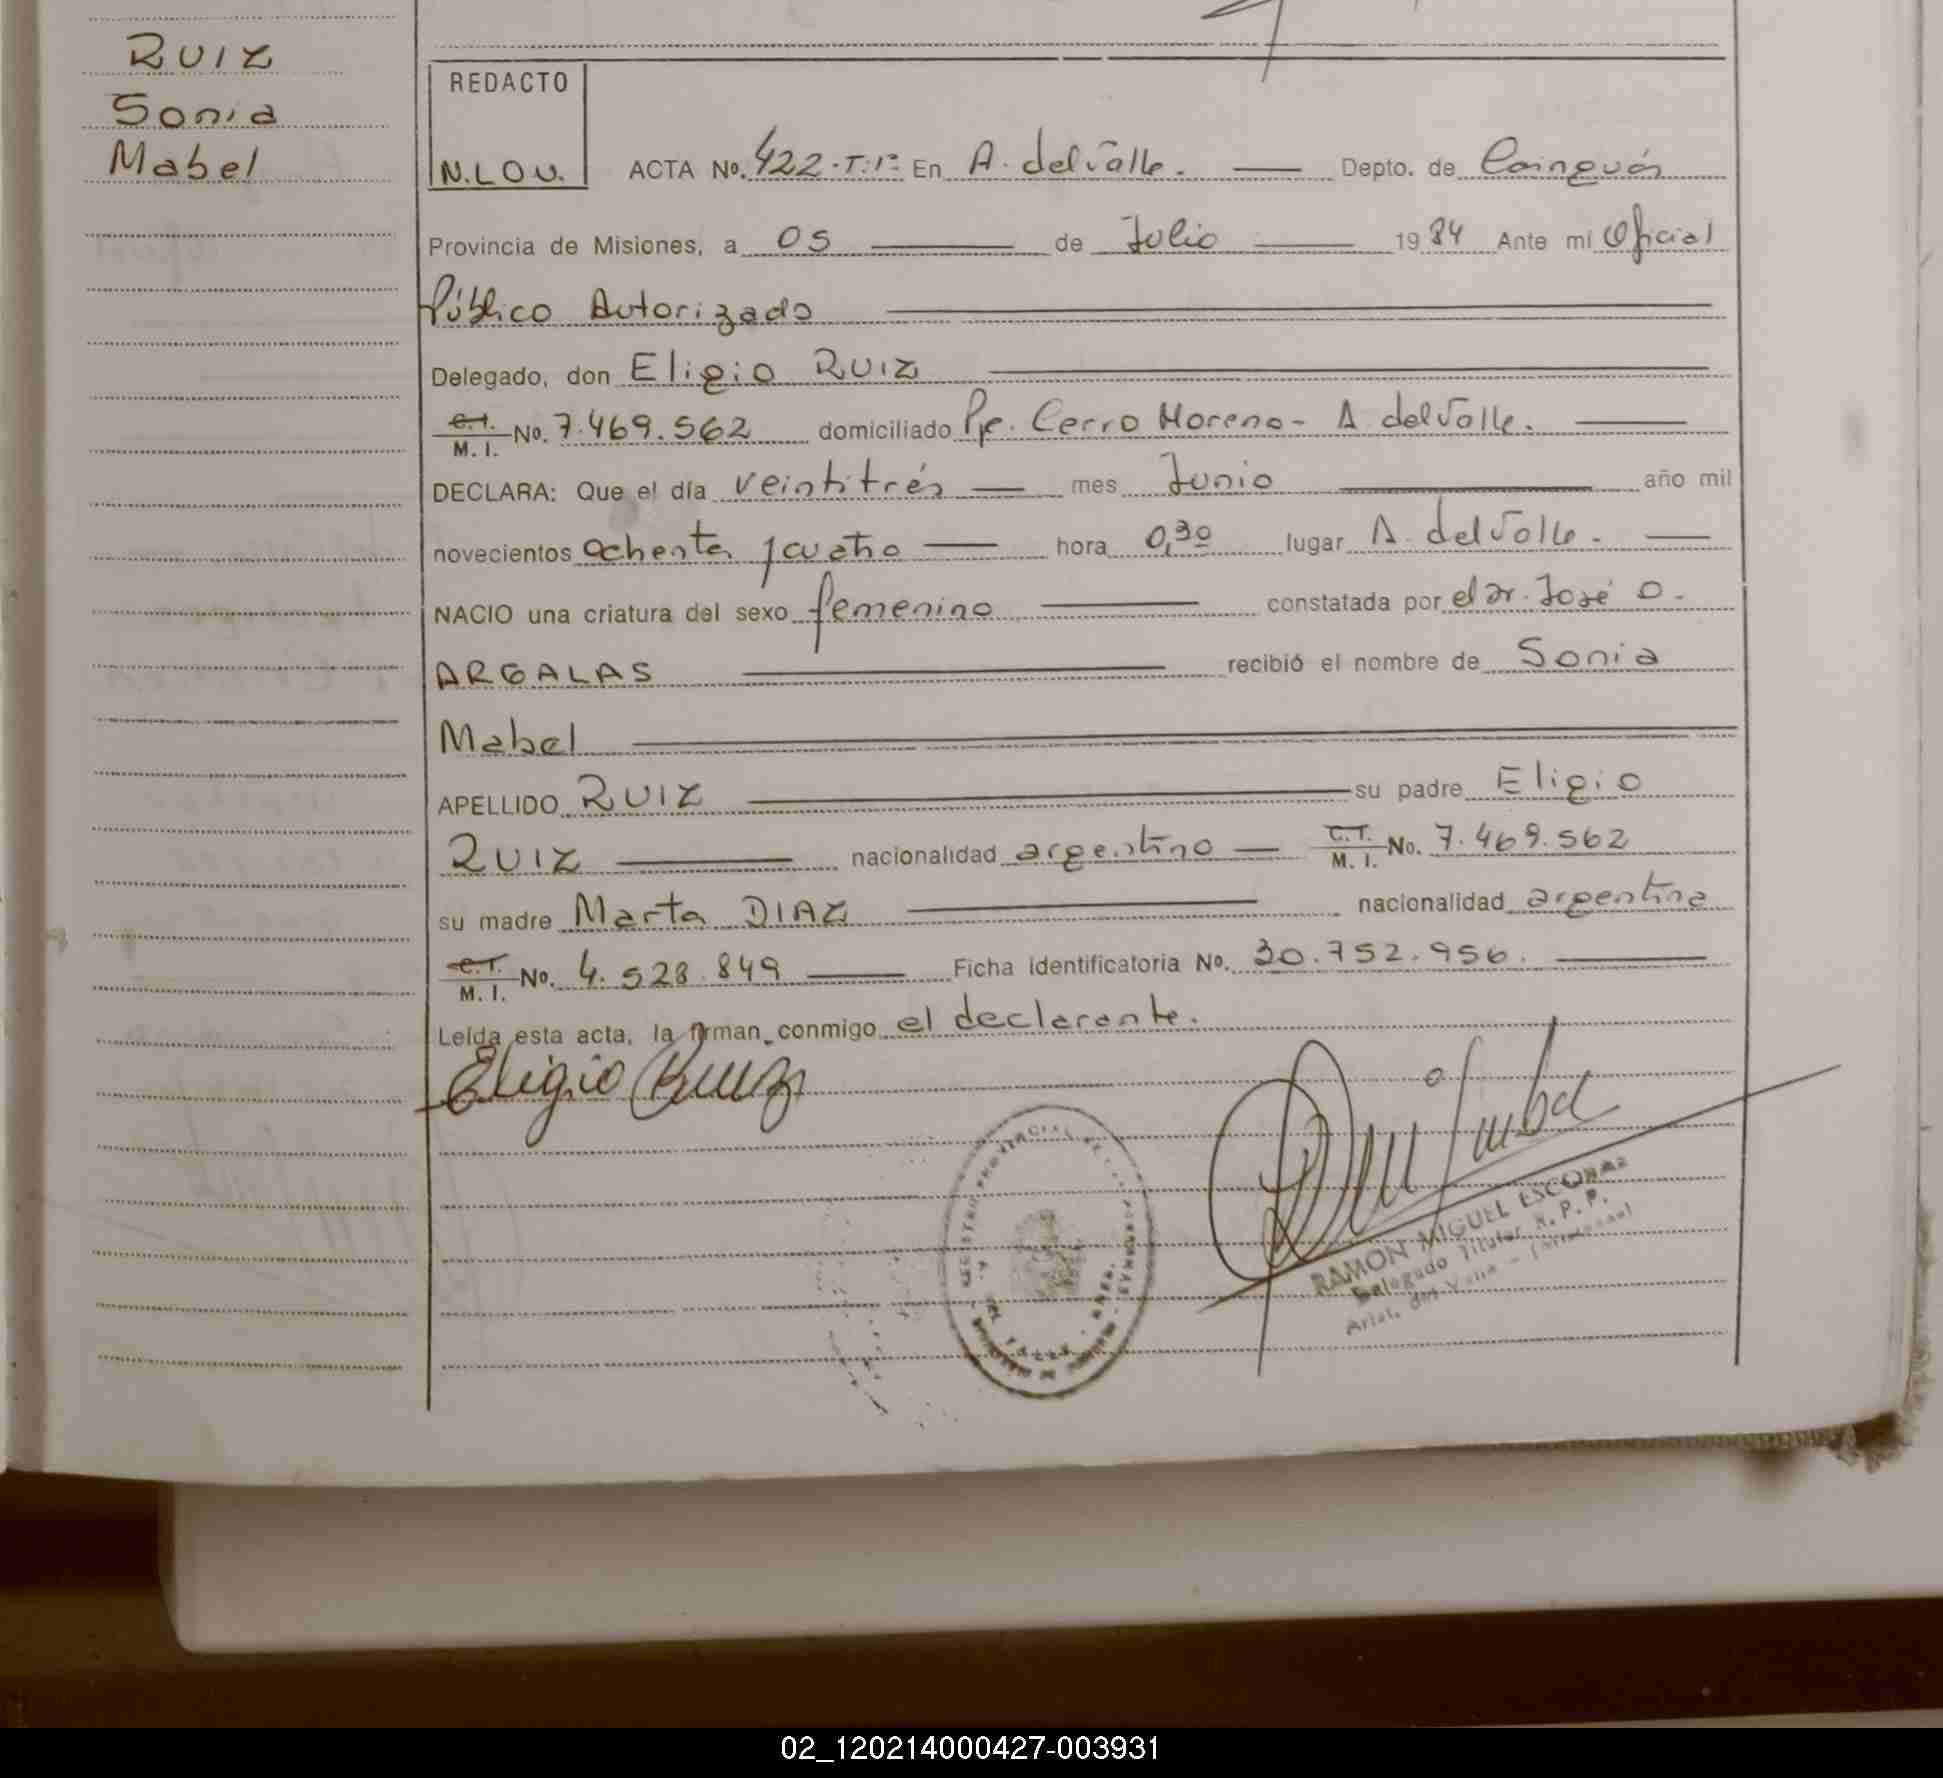 RUIZ
Sonia
Mabel
REDACTO
N.L.O.V.
ACTA No. 422-T:1º En A. del Valle. Depto. de Cainguás
Provincia de Misiones, a 05 de Julio 1984 Ante mi Oficial
Público Autorizado
Delegado, don Eligio RUIZ
C.I. M. I. No. 7.469.562 domiciliado Pje. Cerro Moreno - A. del Valle.
DECLARA: Que el día veintitrés mes Junio año mil
novecientos ochenta y cuatro hora 0,30 lugar A. del Valle.
NACIO una criatura del sexo femenino constatada por el Dr. José O.
ARGALAS recibió el nombre de Sonia
Mabel
APELLIDO RUIZ su padre Eligio
RUIZ nacionalidad argentino C.I. M. I. No. 7.469.562
su madre Marta DIAZ nacionalidad argentina
C.I. M. I. No. 4.528.849 Ficha identificatoria No. 30.752.956.
Leída esta acta, la firman conmigo el declarante.
Eligio Ruiz
REGISTRO PROVINCIAL DE LAS PERSONAS
RAMON MIGUEL ESCOBAR
Delegado Titular R. P. P.
Arist. del Valle - (Misiones)
02_120214000427-003931